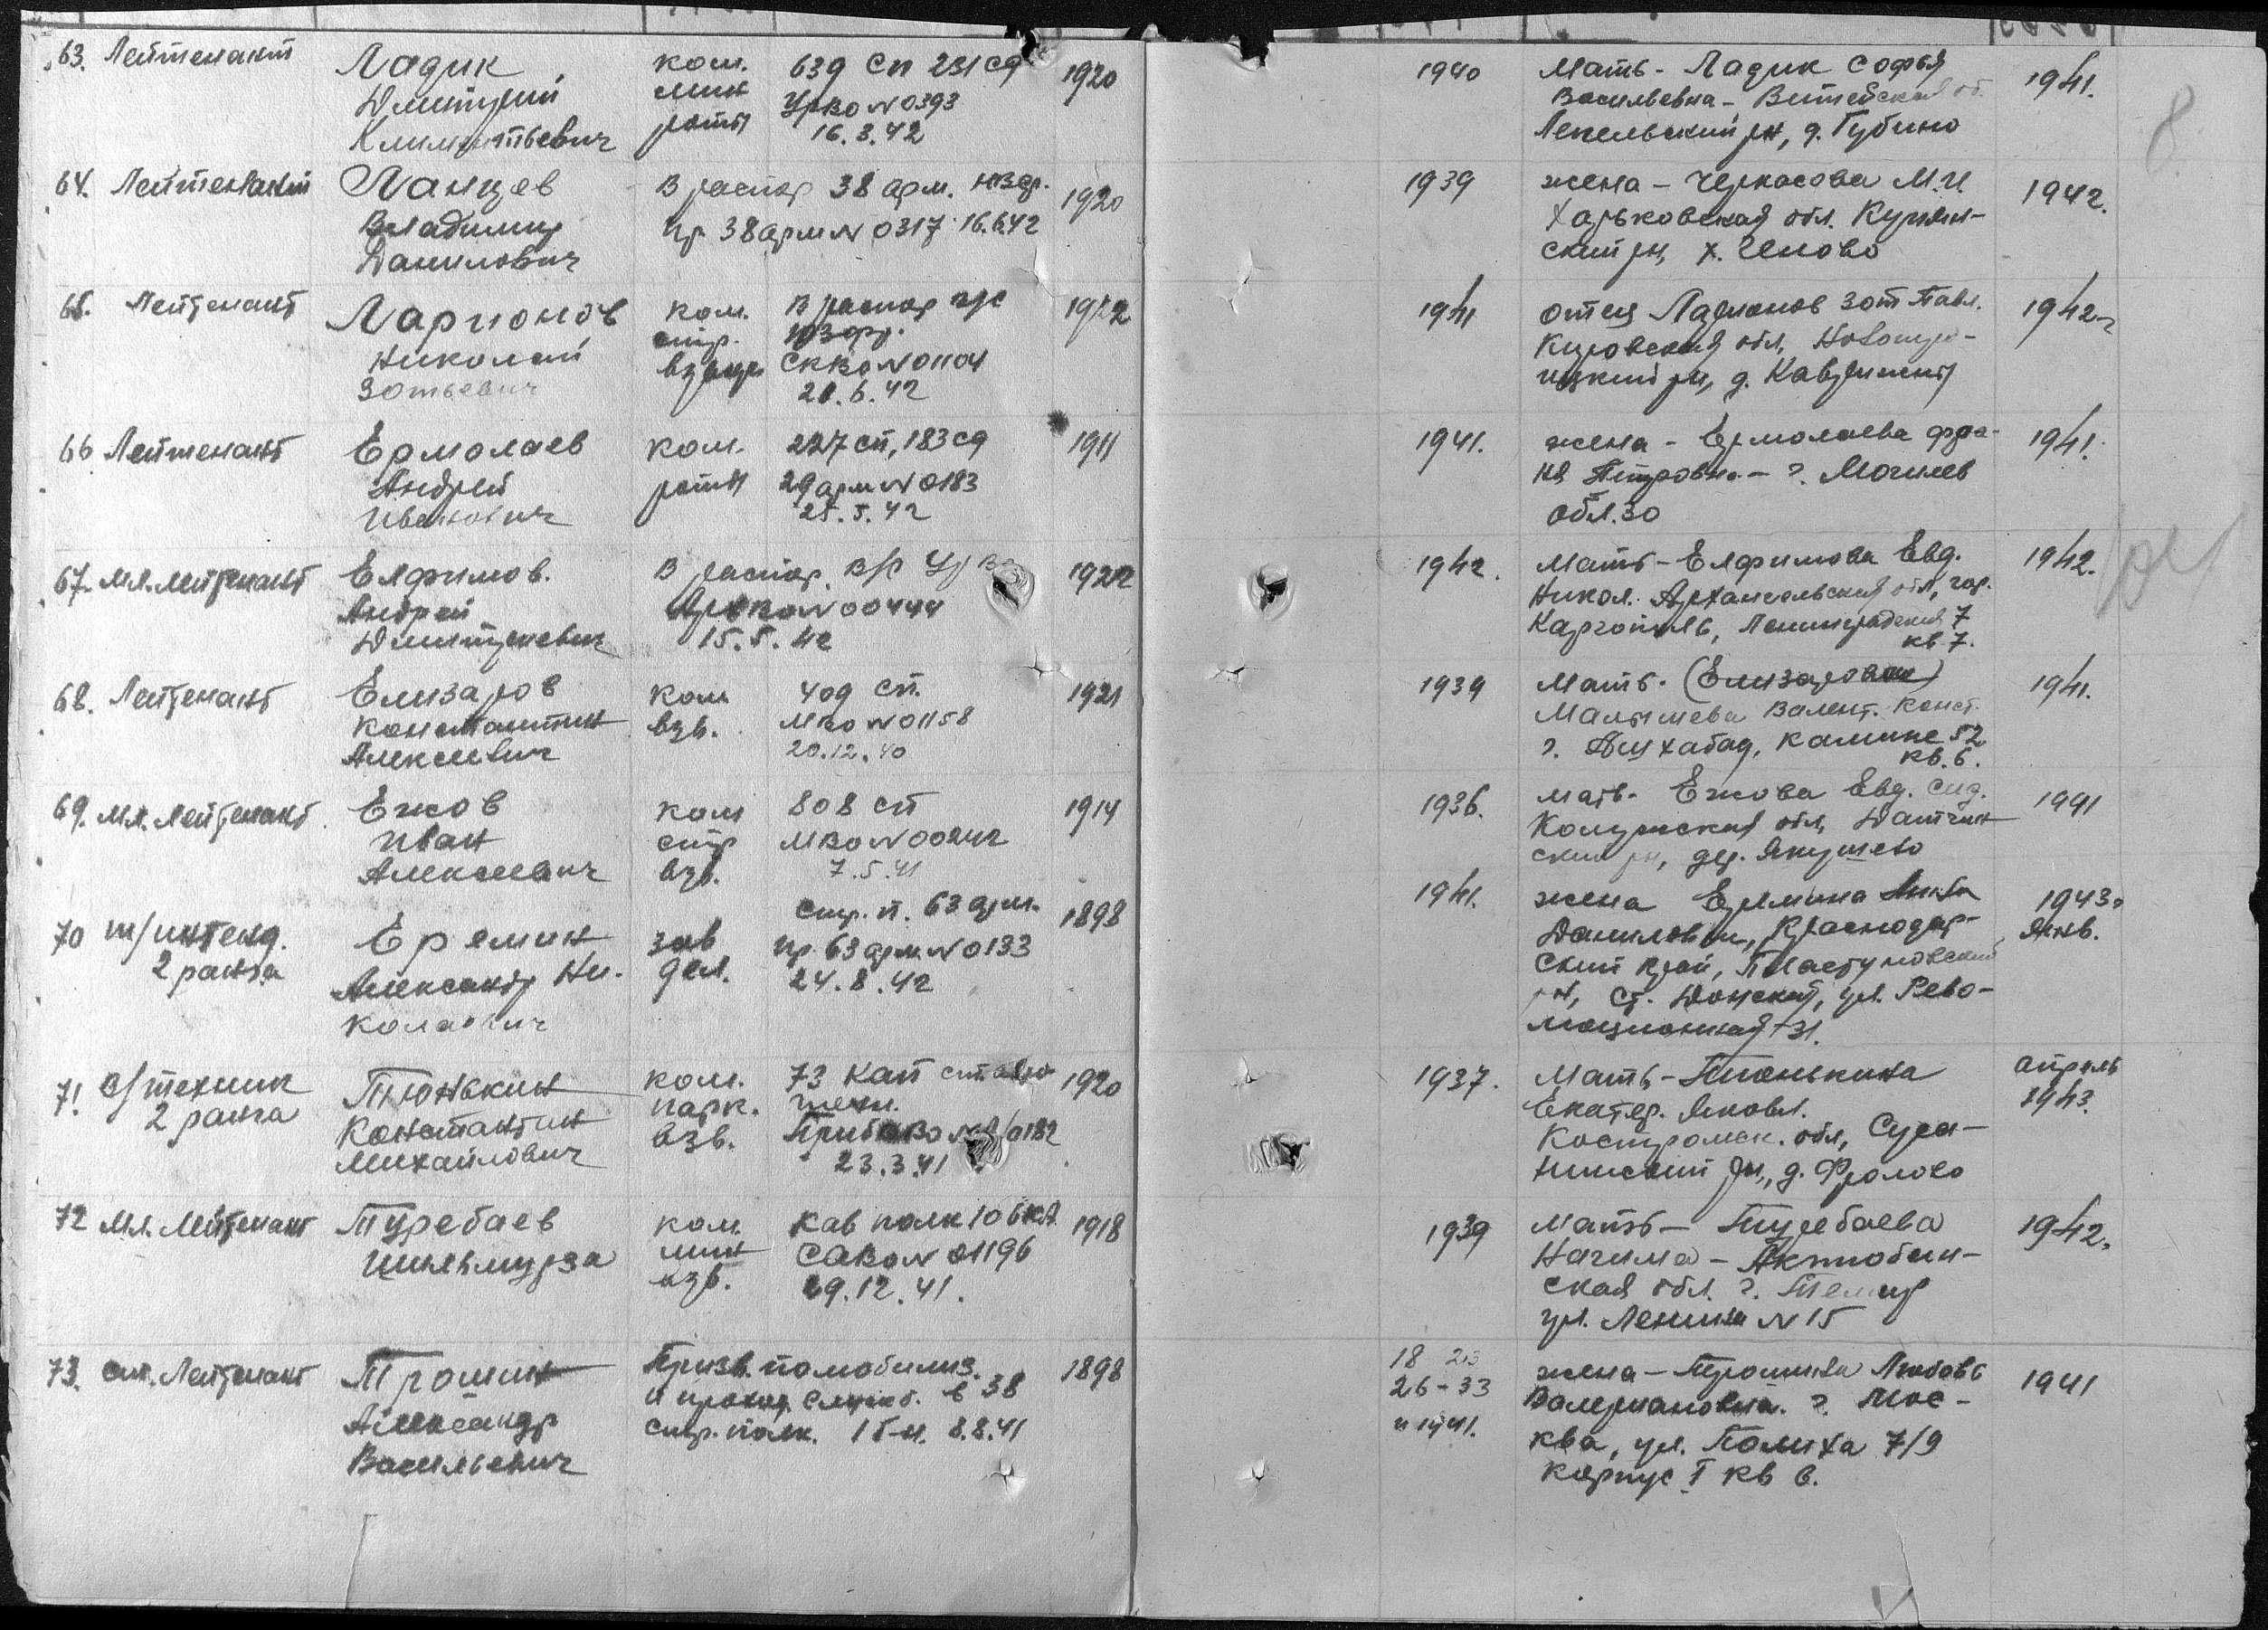 63. Лейтенант
Ладик
Дмитрий
Климентьевич
ком.
мин
роты
639 сп 231 сд
УрВО № 0393
16.3.42
1920
1940
Мать - Ладик Софья
Васильевна - Витебская об.
Лепельский рн, д. Губино
1941.
64. Лейтенант
Ланцев
Владимир
Данилович
В распор 38 арм. ЮЗФр.
Пр 38 арм № 0317 16.6.42
1920
1939
жена - Черкасова М.И.
Харьковская обл. Купян-
ский рн, х.
1942.
65. Лейтенант
Ларионов
Николай
Зотьевич
ком.
стр.
взвода
В распор
ЮЗФр.
СКВО № 01104
20.6.42
1922
1941
отец Ларионов Зот Павл.
Кировская обл,
рн, д.
1942 г
66 Лейтенант
Ермолаев
Андрей
Иванович
ком.
роты
227 сп, 183 сд
29 арм № 0183
25.5.42
1911
1941.
жена - Ермолаева
Петровна - г. Могилев
обл.
1941.
67. Мл. лейтенант
Елфимов.
Андрей
Дмитриевич
В распор. в/с
АрхВО № 00444
15.5.42
1922
1942.
Мать - Елфимова Евд.
Никол. Архангельская обл, гор.
Каргополь, Ленинградская 7
кв 7.
1942.
68. Лейтенант
Елизаров
Константин
Алексеевич
ком
взв.
409 сп.
МВО № 01158
20.12.40
1921
1939
Мать. (Елизарова)
Малышева Валент. Конст.
г. Ашхабад, Калинина 52
кв. 6.
1941.
69. Мл. Лейтенант
Ежов
Иван
Алексеевич
ком
стр
взв.
808 сп
МВО №
7.5.41
1914
1936.
мать - Ежова Евд. Сид.
обл,
ский рн, дер. Якушево
1941
70 т/интенд.
2 ранга
Еремин
Александр Ни-
колаевич
зав
дел.
Стр. п. 63 арм.
Пр. 63 арм. № 0133
24.8.42
1898
1941.
жена Еремина
Даниловна, Краснодар-
ский край, Пластуновский
рн, ст. Динская, ул. Рево-
люционная - 31.
1943 г
Янв.
71. в/техник
2 ранга
Тюнькин
Константин
Михайлович
ком.
парк.
взв.
73 кап ст. авто
техн.
ПрибОВО
23.3.41
1920
1937.
Мать - Тюнькина
Екатер. Яковл.
Костромск. обл, Суса-
нинский рн, д. Фролово
апрель
1943.
72 Мл. Лейтенант
Туребаев
ком.
мин
взв.
Кав полк 106 кд
САВО № 01196
29.12.41.
1918
1939
Мать - Туребаева
Нагима - Актюбин-
ская обл. г. Темир
ул. Ленина № 15
1942.
73. ст. Лейтенант
Трошин
Александр
Васильевич
Призв. по мобилиз.
и проход. служб. в 38
стр. полк. 8.8.41
1898
18 23
26-33
и 1941.
жена - Трошина Любовь
Валериановна. г. Мос-
ква, ул. Палиха 7/9
корпус I кв 6.
1941